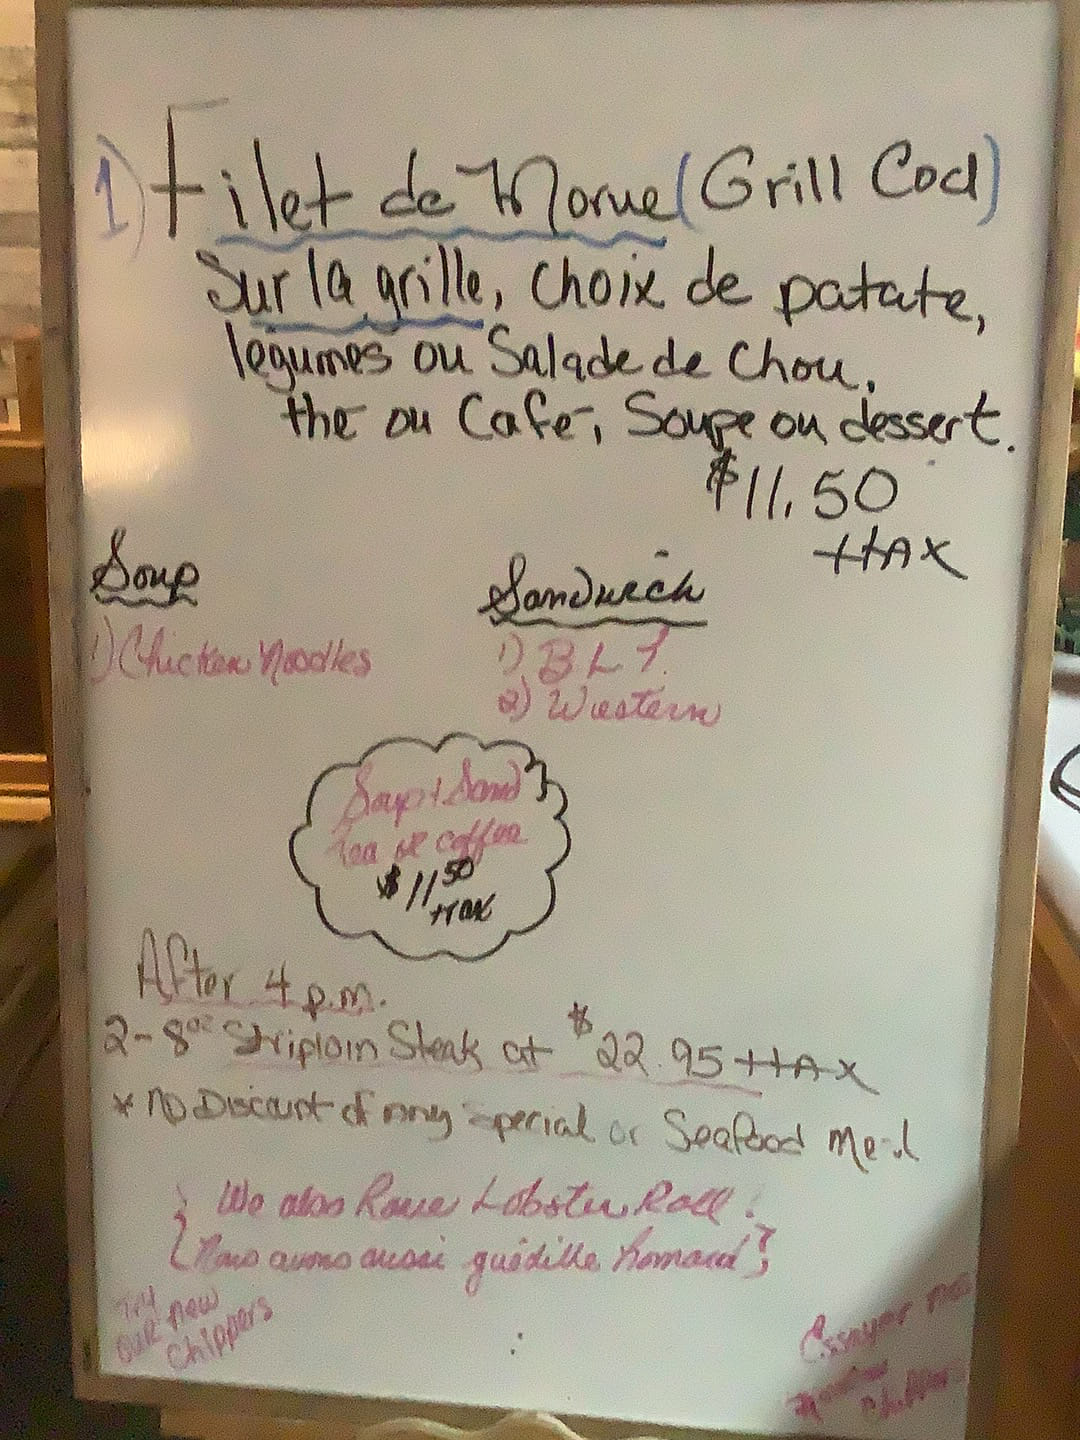 1) Filet de Morue (Grill Cod)
Sur la grille, Choix de patate,
legumes ou Salade de Chou,
the ou Cafe, Soupe ou dessert.
$11.50
+tAX
Soup
1) Chicken Noodles
Sandwich
1) BLT.
2) Western
Soup + Sand
Tea or coffee
$11 50
+TAX
After 4 p.m.
2-8oz Striploin Steak at $22.95 +tAX
* No Discount of any Special or Seafood Meal
We also have Lobster Roll!
Nous avons aussi guédille homard
Try
our new
chippers
Essayer nos